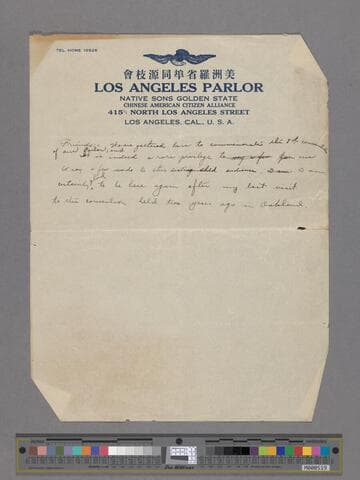 TEL. HOME 10926
會枝源同埠省羅洲美
LOS ANGELES PARLOR
NATIVE SONS GOLDEN STATE
CHINESE AMERICAN CITIZEN ALLIANCE
415½ NORTH LOS ANGELES STREET
LOS ANGELES, CAL., U. S. A.
Friends, gathered here to commemorate this
of our Parlor, and
It is indeed a rare privilege to for me
to say a few words to this audience I am
certainly glad to be here again after my last visit
to the convention held two years ago in Oakland
M000519